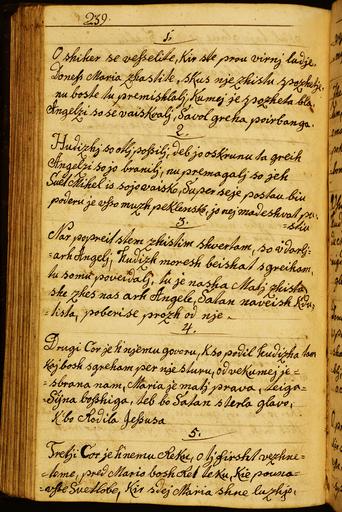 239.
1.
O shiher se vesselite, Kir ste prou virnj ludje.
Doness Maria zhastite, skus nje zhistu spozhetje,
nu boste tu premishlalj, Kumej je spozheta bla
Angelzi so se vaiskvalj, Savol greha poirbanga.
2.
Hudizhj so otlj possilj, deb jo oskrunu ta greih
Angelzi so jo branilj, nu premagalj so jeh
Suet Mihel is sojo vaisko, Super seje postau biu
poderu je vsso muzh peklensko, jo nej madeshvat pu=
=stiu
3.
Nar popreil stem zhistim shvertam, so vdarlj=
=ark Angelj, Hudizh moresh beishat sgreiham,
tu somu poveidalj, tu je nasha Matj zhista
ske zhes nas ark Angele, Satan naveish Krü,
lista, poberi se prozh od nje.
4.
Drugi Cor je h njemu govoru, K so podil hudizha tam
Kaj bosh sgreham per nje sturu, od vekumej je=
=sbrana nam, Maria je matj prava, teiga=
=Sijna bosshiga, teb bo Satan sterla glavo,
K bo Rodila Jessusa
5.
Tretji Cor je h nemu Reku, O tj firsht vezhne=
=teme, pred Mario bosh
=osse Svetlobe, Kir sdej Maria shne luzhjo,